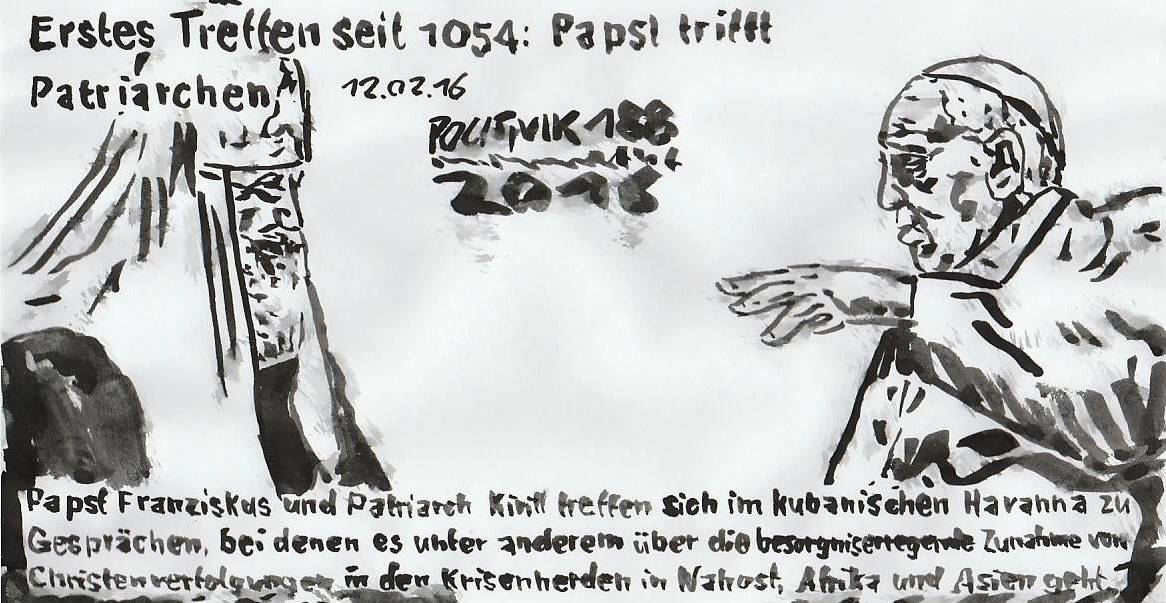 Erstes Treffen seit 1054: Papst trifft
Patriarchen, 12.02.16
POLITIVIK 188
2016
Papst Franziskus und Patriarch Kirill treffen sich im kubanischen Havanna zu
Gesprächen, bei denen es unter anderem über die besorgniserregende Zunahme von
Christenverfolgungen in den Krisenherden in Nahost, Afrika und Asien geht.